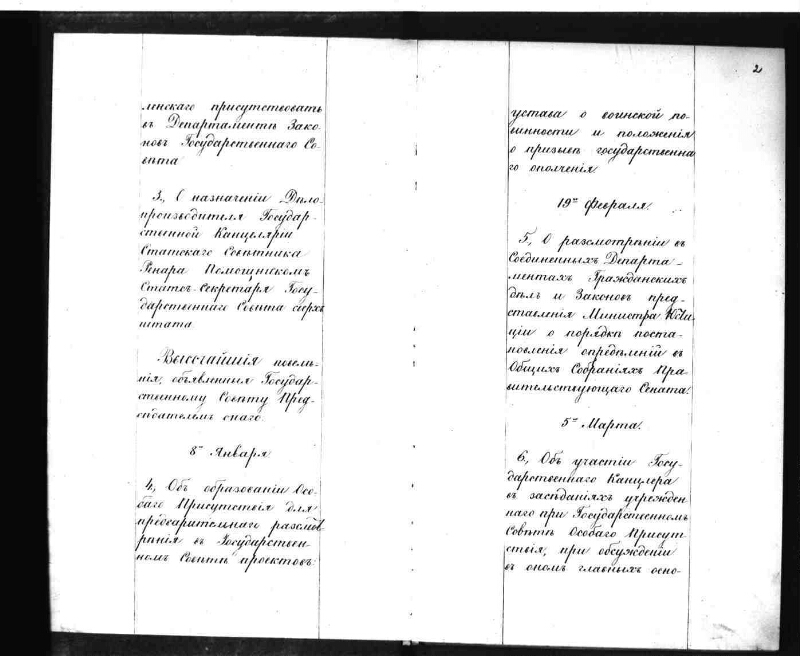 ленскаго присутствовать
въ Департаментѣ Зако-
новъ Государственнаго Со-
вѣта
3., О назначеніи Дѣло-
производителя Государ-
ственной Канцеляріи
Статскаго Совѣтника
Ренара Помощникомъ
Статсъ-Секретаря Госу-
дарственнаго Совѣта сверхъ
штата
Высочайшія повелѣ-
нія, объявленныя Государ-
ственному Совѣту Пред-
сѣдателемъ онаго.
8го Января
4., Объ образованіи Осо-
баго Присутствія для
предварительнаго разсмот-
рѣнія въ Государствен-
номъ Совѣтѣ проектовъ
2
устава о воинской по-
винности и положенія
о призывѣ государственна-
го ополченія.
19го Февраля.
5., О разсмотрѣніи въ
Соединенныхъ Департа-
ментахъ Гражданскихъ
дѣлъ и Законовъ пред-
ставленія Министра Юсти-
ціи о порядкѣ поста-
новленія опредѣленій въ
Общихъ Собраніяхъ Пра-
вительствующаго Сената.
5го Марта.
6., Объ участіи Госу-
дарственнаго Канцлера
въ засѣданіяхъ учрежден-
наго при Государственномъ
Совѣтѣ Особаго Присут-
ствія, при обсужденіи
въ ономъ главныхъ осно-